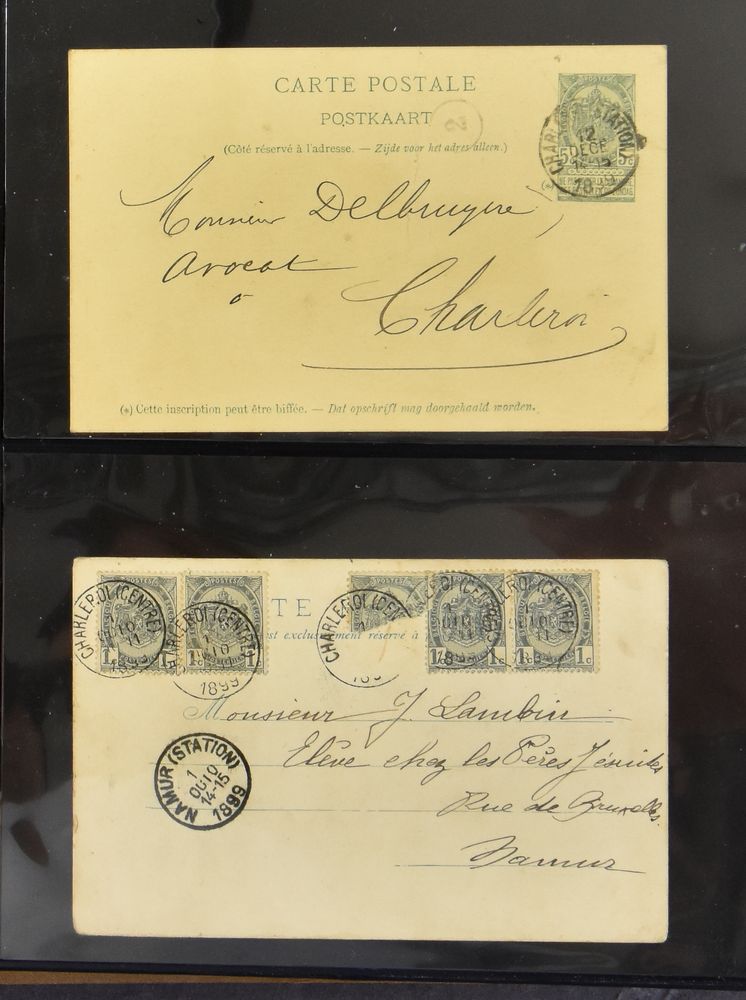 CARTE POSTALE
POSTKAART
(Côté réservé à l'adresse. — Zijde voor het adres alleen.)
2
POSTES
CHARLEROI (STATION)
12
DECE
5c 5c
Monsieur Delbruyere,
Avocat
à
Charleroi
(*) Cette inscription peut être biffée. — Dat opschrift mag doorgehaald worden.
POSTES POSTES
CHARLEROI (CENTRE)
1899
CHARLEROI (CENTRE)
1899
1c 1c 1c 1c
TE
est exclusivement réservé à
Monsieur J. Lambin
Elève chez les Pères Jésuites
Rue de Bruxelles.
Namur
NAMUR (STATION)
1
OUTO
14-15
1899